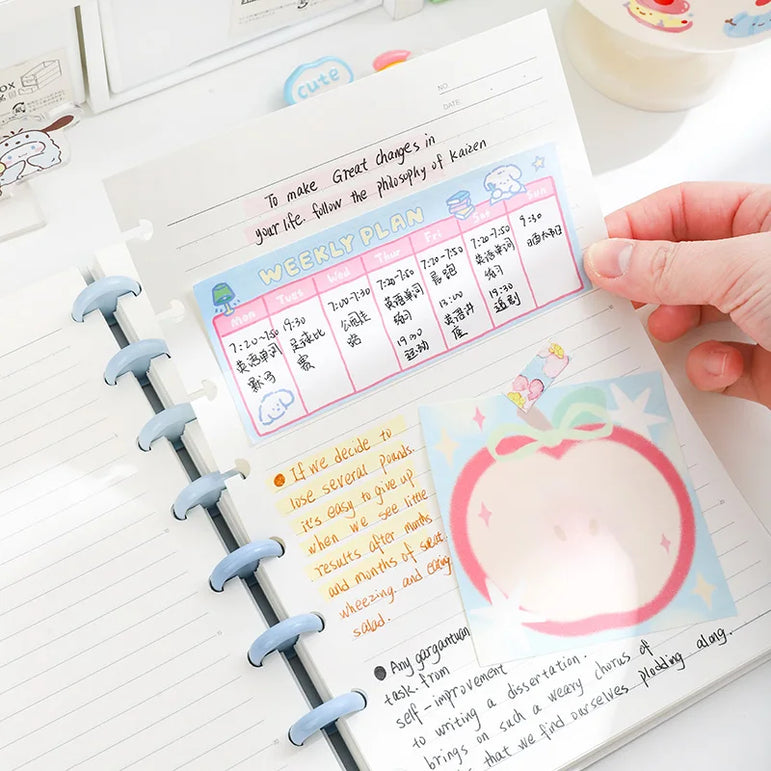 BOX
cute
NO.
DATE.
To make Great changes in
your life. follow the philosophy of kaizen
WEEKLY PLAN
Mon Tues Wed Thur Fri Sat Sun
7:20-7:50
英语单词
默写
19:30
足球比
赛
7:00-7:30
公园走
路
7:20-7:50
英语单词
练习
19:00
运动
7:20-7:50
晨跑
13:00
英语讲
座
7:20-7:50
英语单词
练习
19:30
追剧
9:30
If we decide to
lose several pounds.
it's easy to give up
when we see little
results after months
and months of sweat.
wheezing. and eating
salad.
Any gargantuan
task. from
self-improvement
to writing a dissertation.
brings on such a weary chorus of
that we find ourselves plodding along.